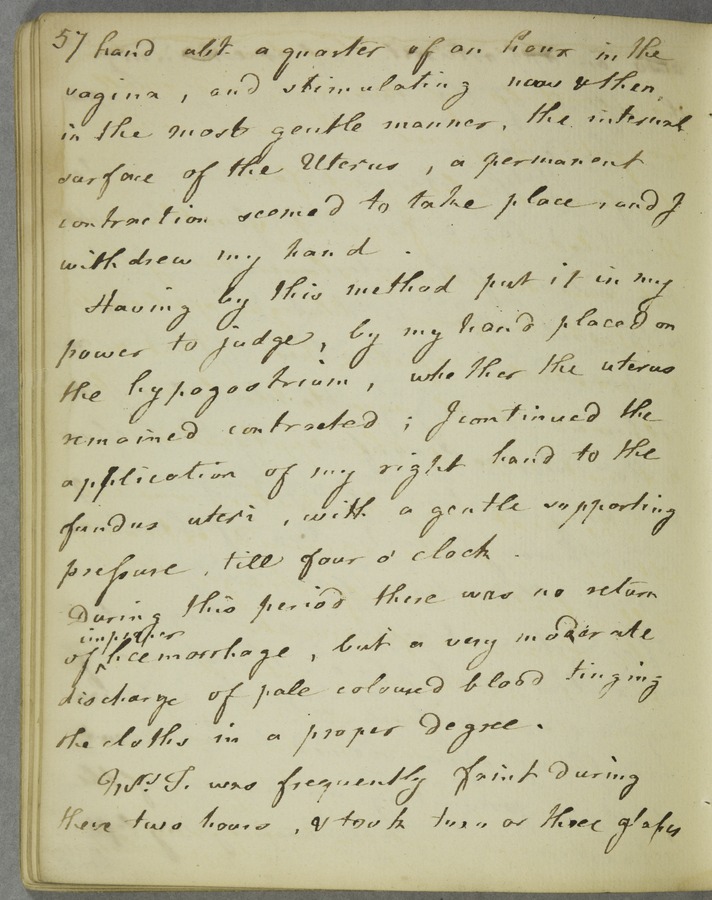 57 hand abt. a quarter of an hour in the
vagina, and stimulating now & then,
in the most gentle manner, the internal
surface of the Uterus, a permanent
contraction seemed to take place, and I
withdrew my hand.
Having by this method put it in my
power to judge, by my hand placed on
the hypogastrium, whether the uterus
remained contracted; I continued the
application of my right hand to the
fundus uteri, with a gentle supporting
pressure, till four o'clock.
During this period there was no return
improper
of hæmorrhage, but a very moderate
discharge of pale coloured blood tinging
the cloths in a proper degree.
Mrs. T. was frequently faint during
these two hours, & took two or three glasses